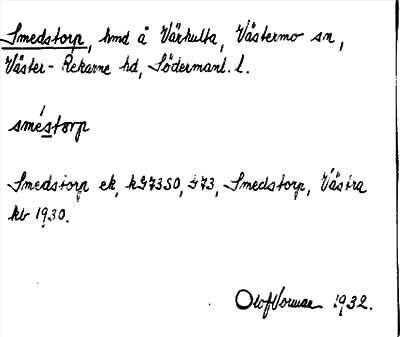 Smedstorp, hmd å Värhulta, Västermo sn,
Väster-Rekarne hd, Södermanl. l.
sméstorp
Smedstorp ek, kG73SO, J73, Smedstorp, Västra
kb 1930.
Olof Vorman 1932.